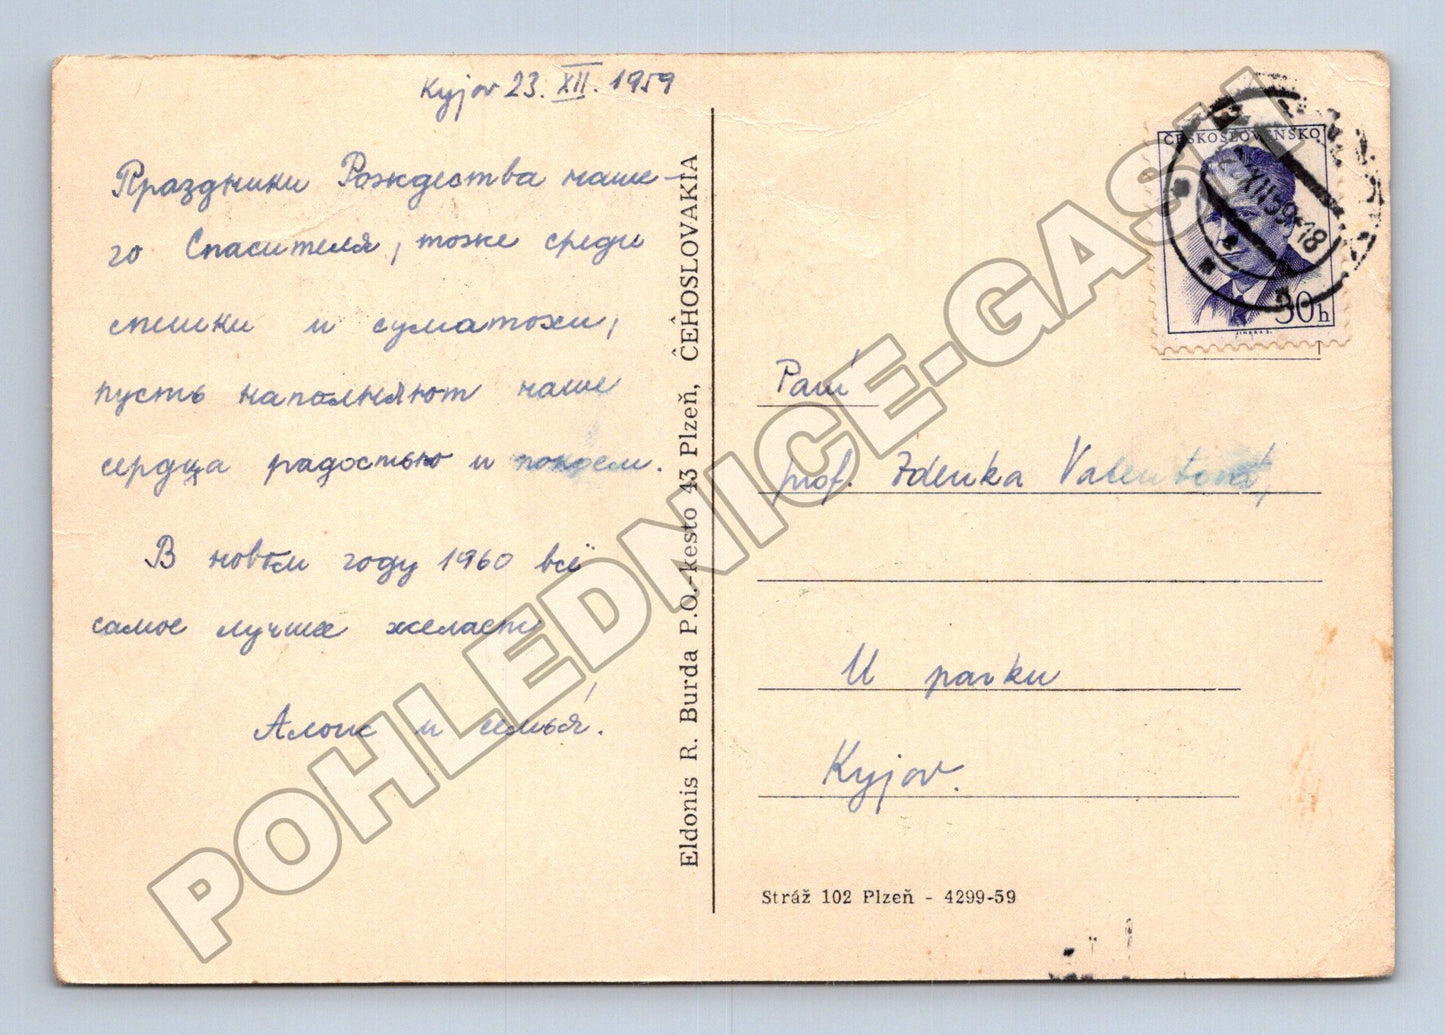 Kyjov 23. XII. 1959
Праздники Рождества наше-
го Спасителя, тоже среди
спешки и суматохи,
пусть наполняют наше
сердца радостью и покоем.
В новом году 1960 всё
самое лучшее желает
Алоис и семья!
Eldonis R. Burda P.O.-kesto 43 Plzeň, ĈEĤOSLOVAKIA
ČESKOSLOVENSKO
XII.59-18
30h
Paní
prof. Zdenka Valentová,
U parku
Kyjov.
Stráž 102 Plzeň - 4299-59
POHLEDNICE-GASH